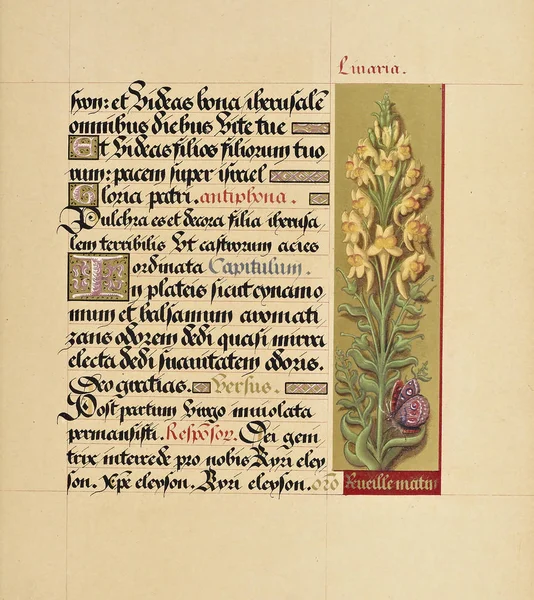 Linaria.
syon: et Videas bona iherusalē
omnibus diebus Vite tue
Et Videas filios filiorum tuo
rum: pacem super israel
Gloria patri. antiphona.
Pulchra es et decora filia iherusa
lem terribilis Vt castrorum acies
ordinata Capitulum.
In plateis sicut cynamo
mum et balsamum aromati
zans odorem dedi quasi mirra
electa dedi suauitatem odoris.
Deo gratias. Versus.
Post partum Virgo inuiolata
permansisti. Respōsor. Dei geni
trix intercede pro nobis Kyri eley
son. Xpē eleyson. Kyri eleyson. orō
Reueille matin